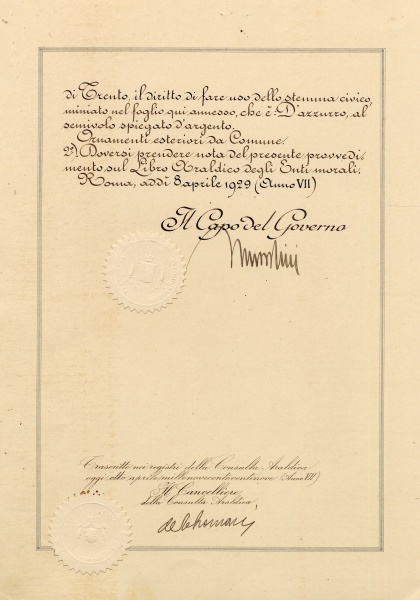 di Trento, il diritto di fare uso dello stemma civico,
miniato nel foglio qui annesso, che è: D'azzurro, al
semivolo spiegato d'argento.
Ornamenti esteriori da Comune.
2°) Doversi prendere nota del presente provvedi=
mento sul Libro Araldico degli Enti morali.
Roma, addì 8 aprile 1929 (Anno VII)
Il Capo del Governo
Mussolini
Trascritto nei registri della Consulta Araldica
oggi otto aprile millenovecentoventinove (Anno VII)
Il Cancelliere
della Consulta Araldica